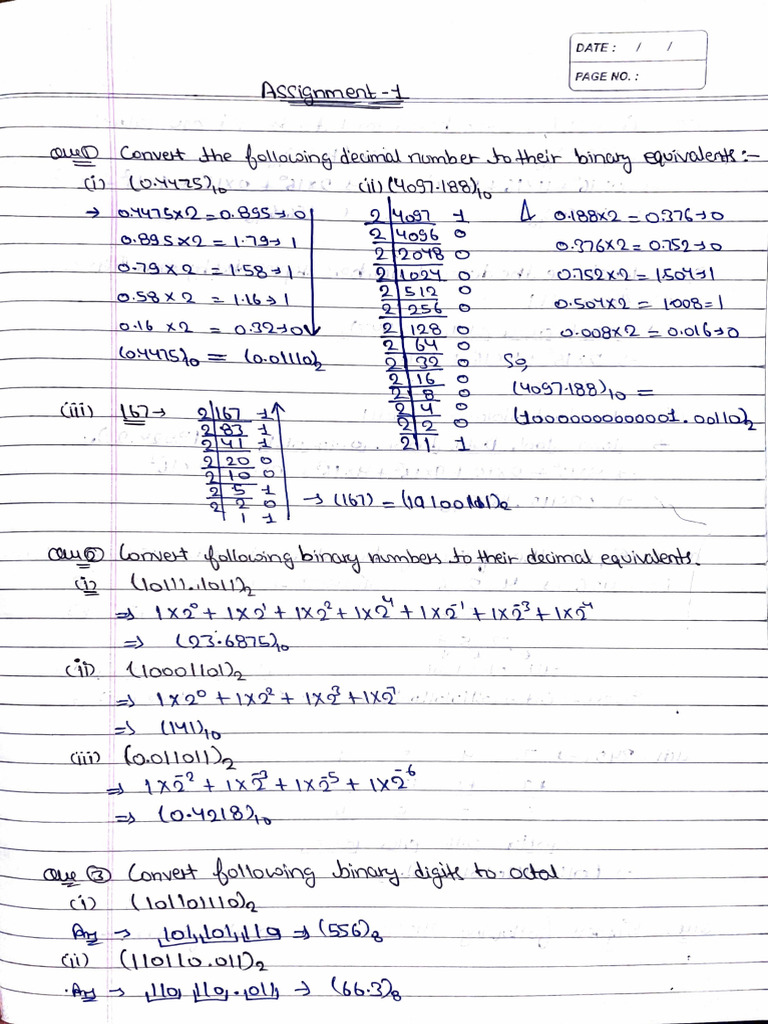 DATE : / /
PAGE NO. :
Assignment-1
Que① Convert the following decimal number to their binary equivalents:-
(i) (0.4475)₁₀ (ii) (4097.188)₁₀
→ 0.4475×2 = 0.895→0
0.895×2 = 1.79→1
0.79×2 = 1.58→1
0.58×2 = 1.16→1
0.16×2 = 0.32→0
(0.4475)₁₀ = (0.01110)₂
2 | 4097 1
2 | 4096 0
2 | 2048 0
2 | 1024 0
2 | 512 0
2 | 256 0
2 | 128 0
2 | 64 0
2 | 32 0
2 | 16 0
2 | 8 0
2 | 4 0
2 | 2 0
2 | 1 1
0.188×2 = 0.376→0
0.376×2 = 0.752→0
0.752×2 = 1.504→1
0.504×2 = 1.008=1
0.008×2 = 0.016→0
So,
(4097.188)₁₀ =
(1000000000001.00110)₂
(iii) 167→
2 | 167 1
2 | 87 1
2 | 41 1
2 | 20 0
2 | 10 0
2 | 5 1
2 | 2 0
1 1
→ (167) = (10100111)₂
Que② Convert following binary numbers to their decimal equivalents.
(i) (10111.1011)₂
⇒ 1×2⁰ + 1×2¹ + 1×2² + 1×2⁴ + 1×2⁻¹ + 1×2⁻³ + 1×2⁻⁴
⇒ (23.6875)₁₀
(ii) (10001101)₂
⇒ 1×2⁰ + 1×2² + 1×2³ + 1×2⁷
⇒ (141)₁₀
(iii) (0.011011)₂
⇒ 1×2⁻² + 1×2⁻³ + 1×2⁻⁵ + 1×2⁻⁶
⇒ (0.4218)₁₀
Que ③ Convert following binary digits to octal
(i) (101101110)₂
Ans → 101,101,110 ⇒ (556)₈
(ii) (110110.011)₂
Ans → 110,110.,011, → (66.3)₈